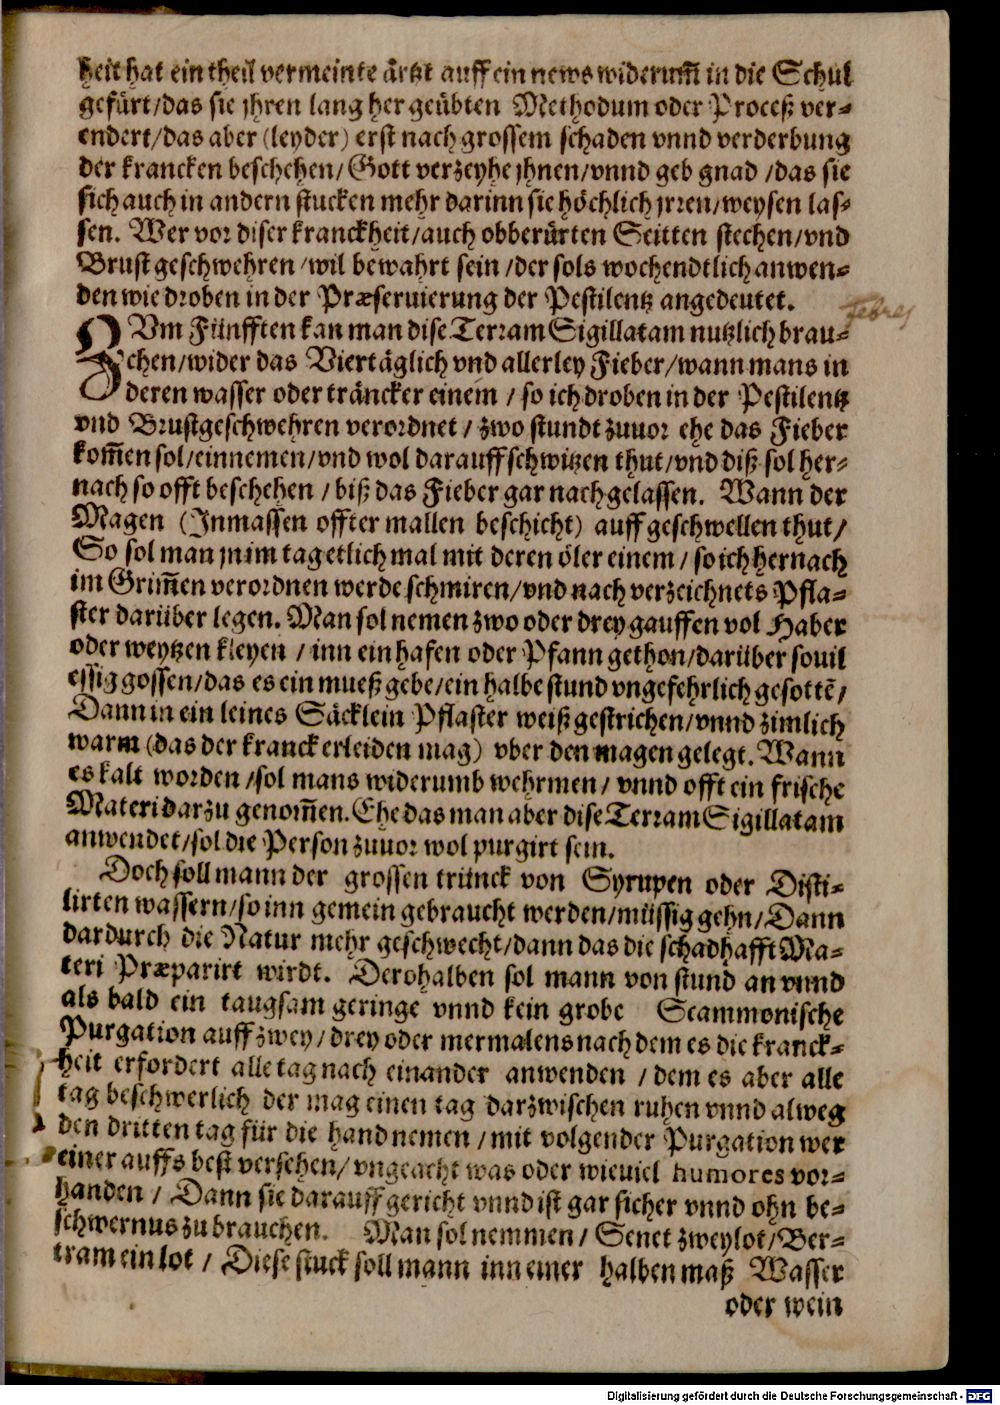 heit hat ein theil vermeinte ärtzt auff ein news widerum̃ in die Schul
gefürt/das sie jhren lang her geübten Methodum oder Proceß ver-
endert/das aber (leyder) erst nach grossem schaden vnnd verderbung
der krancken beschehen/Gott verzeyhe jhnen/vnnd geb gnad /das sie
sich auch in andern stucken mehr darinn sie höchlich jrren/weysen las-
sen. Wer vor diser kranckheit/auch obberürten Seitten stechen/vnd
Brustgeschwehren /wil bewahrt sein /der sols wochendtlich anwen-
den wie droben in der Præseruierung der Pestilentz angedeutet.
febres
ZVm Fünfften kan man dise Terram Sigillatam nutzlich brau-
chen/wider das Viertäglich vnd allerley Fieber/wann mans in
deren wasser oder träncker einem / so ich droben in der Pestilentz
vnd Brustgeschwehren verordnet / zwo stundt zuuor ehe das Fieber
kom̃en sol/einnemen/vnd wol darauff schwitzen thut/vnd diß sol her-
nach so offt beschehen / biß das Fieber gar nachgelassen. Wann der
Magen (Inmassen offter mallen beschicht) auff geschwellen thut/
So sol man jn im tag etlich mal mit deren öler einem / so ich hernach
im Grim̃en verordnen werde schmiren/vnd nach verzeichnets Pfla-
ster darüber legen. Man sol nemen zwo oder drey gauffen vol Haber
oder weytzen kleyen / inn ein hafen oder Pfann gethon/darüber souil
essig gossen/das es ein mueß gebe/ein halbe stund vngefehrlich gesottẽ/
Dann in ein leines Säcklein Pflaster weiß gestrichen/vnnd zimlich
warm (das der kranck erleiden mag) vber den magen gelegt. Wann
es kalt worden /sol mans widerumb wehrmen / vnnd offt ein frische
Materi darzu genom̃en. Ehe das man aber dise Terram Sigillatam
anwendet/sol die Person zuuor wol purgirt sein.
Doch soll mann der grossen trünck von Syrupen oder Disti-
lirten wassern/so inn gemein gebraucht werden/müssig gehn/Dann
dardurch die Natur mehr geschwecht/dann das die schadhafft Ma-
teri Præparirt wirdt. Derohalben sol mann von stund an vnnd
als bald ein taugsam geringe vnnd kein grobe Scammonische
Purgation auff zwey / drey oder mermalens nach dem es die kranck-
heit erfordert alle tag nach einander anwenden / dem es aber alle
tag beschwerlich der mag einen tag darzwischen ruhen vnnd alweg
den dritten tag für die hand nemen / mit volgender Purgation wer
einer auffs best versehen/ vngeacht was oder wieuiel humores vor-
handen / Dann sie darauff gericht vnnd ist gar sicher vnnd ohn be-
schwernus zu brauchen. Man sol nemmen / Senet zwey lot/Ber-
tram ein lot / Diese stuck soll mann inn einer halben maß Wasser
oder wein
Digitalisierung gefördert durch die Deutsche Forschungsgemeinschaft - DFG